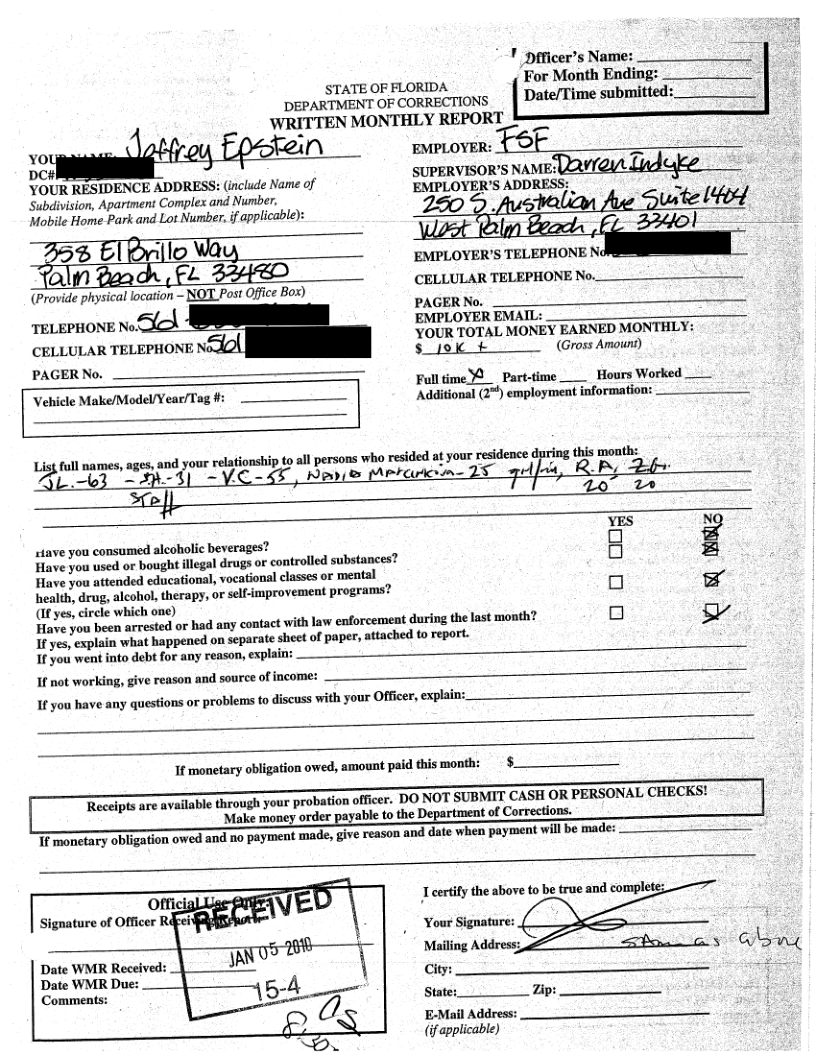 Officer's Name:
For Month Ending:
Date/Time submitted:
STATE OF FLORIDA
DEPARTMENT OF CORRECTIONS
WRITTEN MONTHLY REPORT
YOUR NAME: Jeffrey Epstein
DC#
YOUR RESIDENCE ADDRESS: (include Name of
Subdivision, Apartment Complex and Number,
Mobile Home Park and Lot Number, if applicable):
358 El Brillo Way
Palm Beach, FL 33480
(Provide physical location – NOT Post Office Box)
TELEPHONE No. 561-
CELLULAR TELEPHONE No. 561
PAGER No.
Vehicle Make/Model/Year/Tag #:
EMPLOYER: FSF
SUPERVISOR'S NAME: Darren Indyke
EMPLOYER'S ADDRESS:
250 S. Australian Ave Suite 1404
West Palm Beach, FL 33401
EMPLOYER'S TELEPHONE No.
CELLULAR TELEPHONE No.
PAGER No.
EMPLOYER EMAIL:
YOUR TOTAL MONEY EARNED MONTHLY:
$ 10K + (Gross Amount)
Full time X Part-time Hours Worked
Additional (2nd) employment information:
List full names, ages, and your relationship to all persons who resided at your residence during this month:
JL.-63 - SH.-31 - V.C-55, Nadia -25 R.A, Z.G.
Staff 20 20
YES NO
Have you consumed alcoholic beverages?
Have you used or bought illegal drugs or controlled substances?
Have you attended educational, vocational classes or mental
health, drug, alcohol, therapy, or self-improvement programs?
(If yes, circle which one)
Have you been arrested or had any contact with law enforcement during the last month?
If yes, explain what happened on separate sheet of paper, attached to report.
If you went into debt for any reason, explain:
If not working, give reason and source of income:
If you have any questions or problems to discuss with your Officer, explain:
If monetary obligation owed, amount paid this month: $
Receipts are available through your probation officer. DO NOT SUBMIT CASH OR PERSONAL CHECKS!
Make money order payable to the Department of Corrections.
If monetary obligation owed and no payment made, give reason and date when payment will be made:
Official Use Only:
Signature of Officer Receiving Report:
RECEIVED
JAN 05 2010
15-4
Date WMR Received:
Date WMR Due:
Comments:
I certify the above to be true and complete:
Your Signature:
Mailing Address: Same as above
City:
State: Zip:
E-Mail Address:
(if applicable)